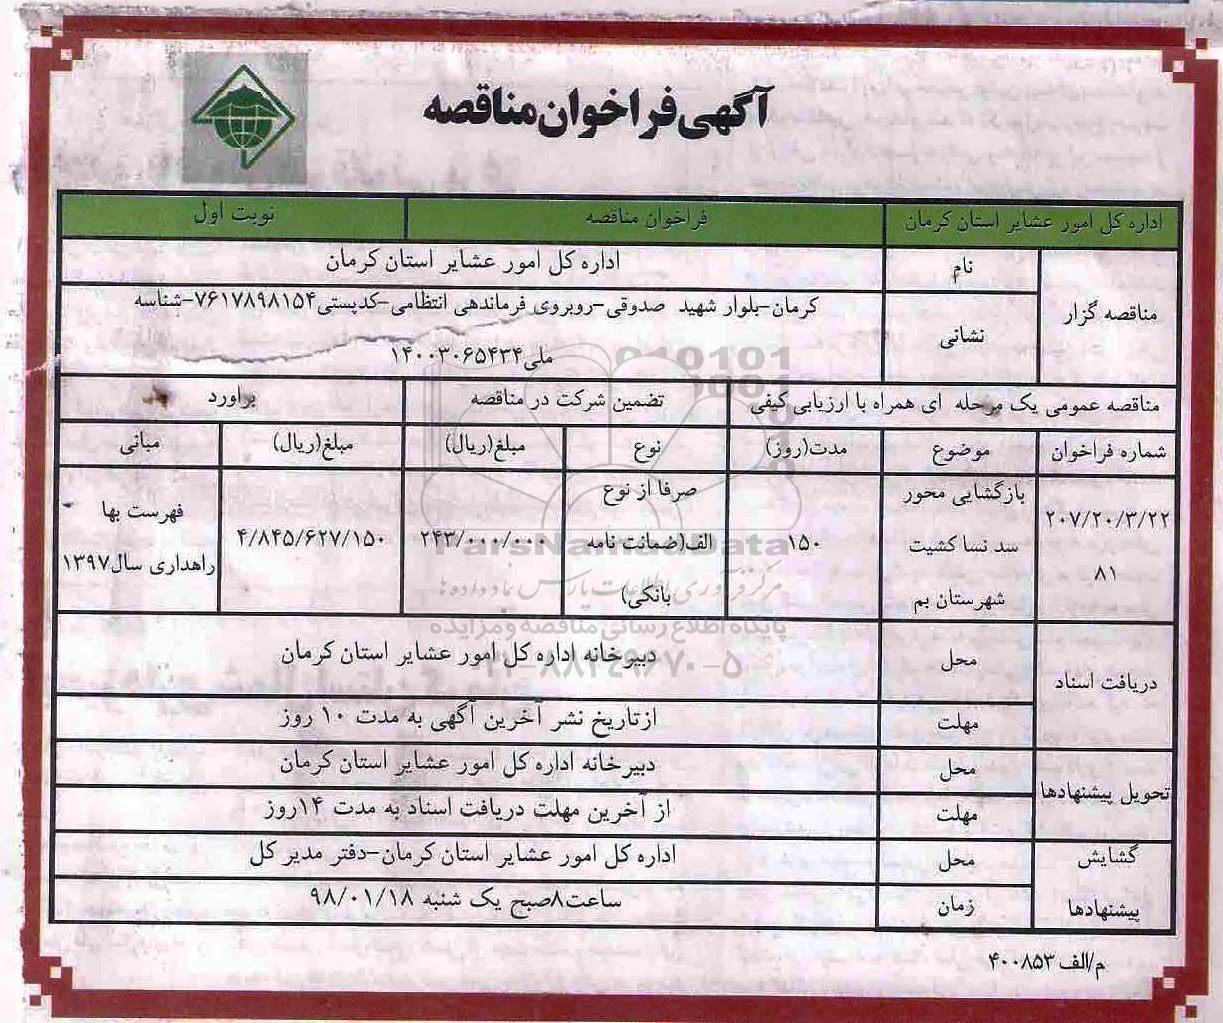 آگهی فراخوان مناقصه
اداره کل امور عشایر استان کرمان
فراخوان مناقصه
نوبت اول
مناقصه گزار
نام
اداره کل امور عشایر استان کرمان
نشانی
کرمان-بلوار شهید صدوقی-روبروی فرماندهی انتظامی-کدپستی۷۶۱۷۸۹۸۱۵۴-شناسه
ملی۱۴۰۰۳۰۶۵۴۳۴
مناقصه عمومی یک مرحله ای همراه با ارزیابی کیفی
تضمین شرکت در مناقصه
براورد
شماره فراخوان
موضوع
مدت(روز)
نوع
مبلغ(ریال)
مبلغ(ریال)
مبانی
۲۰۷/۲۰/۳/۲۲
۸۱
بازگشایی محور
سد نسا کشیت
شهرستان بم
۱۵۰
صرفا از نوع
الف(ضمانت نامه
بانکی)
۲۴۳/۰۰۰/۰۰۰
۴/۸۴۵/۶۲۷/۱۵۰
فهرست بها
راهداری سال۱۳۹۷
دریافت اسناد
محل
دبیرخانه اداره کل امور عشایر استان کرمان
مهلت
ازتاریخ نشر آخرین آگهی به مدت ۱۰ روز
تحویل پیشنهادها
محل
دبیرخانه اداره کل امور عشایر استان کرمان
مهلت
از آخرین مهلت دریافت اسناد به مدت ۱۴روز
گشایش
پیشنهادها
محل
اداره کل امور عشایر استان کرمان-دفتر مدیر کل
زمان
ساعت۸صبح یک شنبه ۹۸/۰۱/۱۸
م/الف ۴۰۰۸۵۳
ParsNamadData
مرکز فرآوری اطلاعات پارس نماد داده ها
پایگاه اطلاع رسانی مناقصه و مزایده